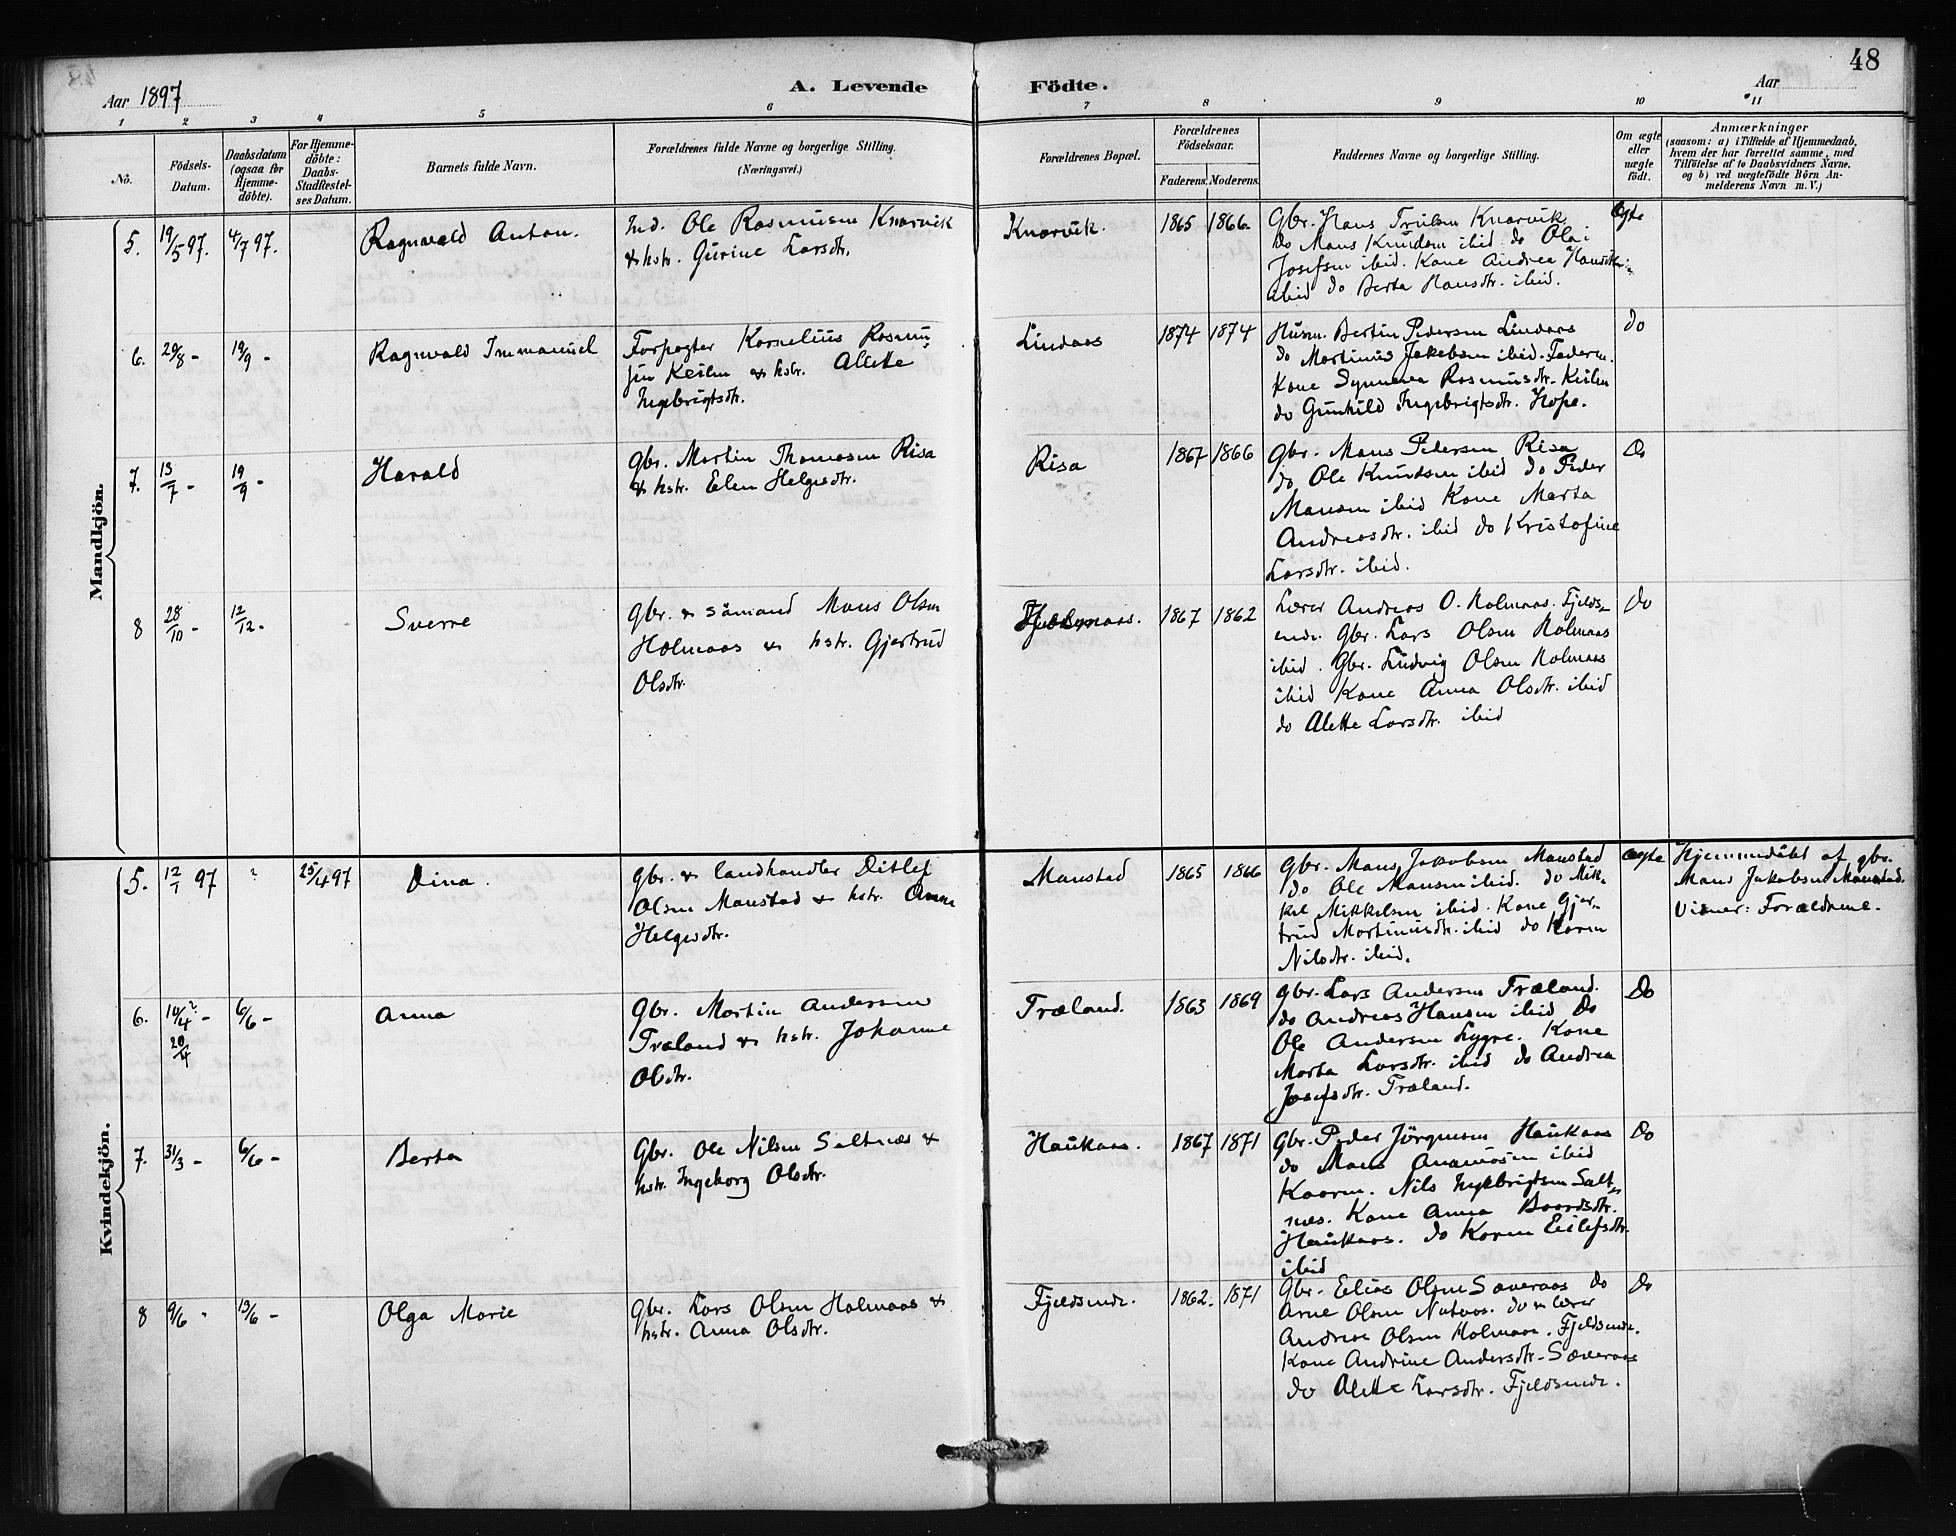 48
Aar 1897
A. Levende
Födte.
Aar
1 2 3 4 5 6 7 8 9 10 11
No.
Födsels-
Datum.
Daabsdatum
(ogsaa for
Hjemme-
döbte).
For Hjemme-
döbte:
Daabs-
Stadfestel-
ses Datum.
Barnets fulde Navn.
Forældrenes fulde Navne og borgerlige Stilling.
(Næringsvei.)
Forældrenes Bopæl.
Forældrenes
Födselsaar.
Faderens. Moderens.
Faddernes Navne og borgerlige Stilling.
Om ægte
eller
uægte
födt.
Anmærkninger
(saasom: a) i Tilfælde af Hjemmedaab,
hvem der har forrettet samme, med
Tilföielse af to Daabsvidners Navne,
og b) ved uægtefödte Börn An-
melderens Navn m. V.)
Mandkjön.
5. 19/5 97. 4/7 97.
Ragnvald Anton.
Ind. Ole Rasmusen Knarvik
& hstr. Gurine Larsdtr.
Knarvik.
1865 1866.
Gbr. Hans Knarvik
do Mans Knudsen ibid. do Olai
Josefsen ibid. Kone Andrea Hansdtr.
ibid do Berta Hansdtr. ibid.
Ægte
6. 29/8 - 19/9 -
Ragnvald Immanuel
Forpagter Kornelius Rasmu-
sen Keilen & hstr. Alette
Ingebrigtsdtr.
Lindaas
1874 1874
Husm. Bertin Pedersen Lindaas
do Martinus Jakobsen ibid. Faderen.
Kone Synneva Rasmusdtr. Keilen
do Gunhild Ingebrigtsdtr. Hope.
Do
7. 13/7 - 19/9 -
Harald
Gbr. Martin Thomasen Risa
& hstr. Elen Helgesdtr.
Risa
1867 1866
Gbr. Mans Pedersen Risa
do Ole Knudsen ibid do Peder
Mansen ibid Kone Marta
Andreasdtr. ibid do Kristofine
Larsdtr. ibid.
Do
8 28/10 - 12/12 -
Sverre
Gbr. & Sömand Mons Olsen
Holmaas & hstr. Gjertrud
Olsdtr.
1867 1862
Lærer Andreas O. Holmaas. Fjelds-
ende. Gbr. Lars Olsen Holmaas
ibid. Gbr. Ludvig Olsen Holmaas
ibid Kone Anna Olsdtr. ibid
do Alette Larsdtr. ibid
Do
Kvindekjön.
5. 12/1 97 ? 25/4 97
Dina.
Gbr. & landhandler Ditlef
Olsen Monstad & hstr. Anne
Helgesdtr.
Monstad
1865 1866
Gbr. Mans Jakobsen Monstad
do Ole Mansen ibid. do Mik-
kel Mikkelsen ibid. Kone Gjer-
trud Martinusdtr. ibid do Karen
Nilsdtr. ibid.
Ægte
Hjemmedöbt af gbr.
Mans Jakobsen Monstad.
Vidner: Forældrene.
6. 10/4? - 6/6 -
20/4
Anna
Gbr. Martin Andersen
Træland & hstr. Johanne
Olsdtr.
Træland.
1863 1869
Gbr. Lars Andersen Træland.
do Andreas Hansen ibid Do
Ole Andersen Lygre. Kone
Marta Larsdtr. ibid do Andrea
Josefsdtr. Træland.
Do
7. 31/3 - 6/6 -
Berta
Gbr. Ole Nilsen Saltnæs &
hstr. Ingeborg Olsdtr.
Haukaas.
1867 1871
Gbr. Peder Jörgensen Haukaas
do Mans ibid
Nils Ingebrigtsen Salt-
næs. Kone Anna Baardsdtr.
Haukaas. do Karen Eilefsdtr.
ibid
Do
8 9/6 - 13/6 -
Olga Marie
Gbr. Lars Olsen Holmaas &
hstr. Anna Olsdtr.
Fjeldsende.
1862. 1871
Gbr. Elias Olsen Sæveraas do
Arne Olsen Nataas. do & lærer
Andreas Olsen Holmaas. Fjeldsende.
Kone Andrine Andersdtr. Sæveraas
do Alette Larsdtr. Fjeldsende.
Do